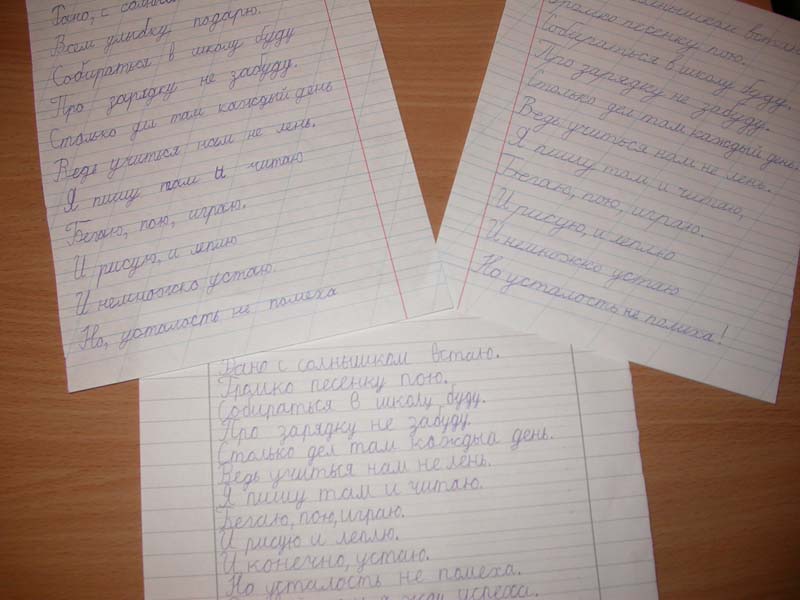 Рано, с солныш
Всем улыбку подарю.
Собираться в школу буду
Про зарядку не забуду.
Столько дел там каждый день
Ведь учиться нам не лень.
Я пишу там и читаю
Бегаю, пою, играю.
И рисую, и леплю
И немножко устаю.
Но, усталость не помеха
солнышком встаю
Громко песенку пою.
Собираться в школу буду.
Про зарядку не забуду.
Столько дел там каждый день.
Ведь учиться нам не лень.
Я пишу там и читаю,
Бегаю, пою, играю.
И рисую, и леплю
И немножко устаю
Но усталость не помеха!
Рано с солнышком встаю.
Громко песенку пою.
Собираться в школу буду.
Про зарядку не забуду.
Столько дел там каждыа день.
Ведь учиться нам не лень.
Я пишу там и читаю.
Бегаю, пою, играю.
И рисую и леплю.
И конечно, устаю.
Но усталость не помеха.
жду успеха.